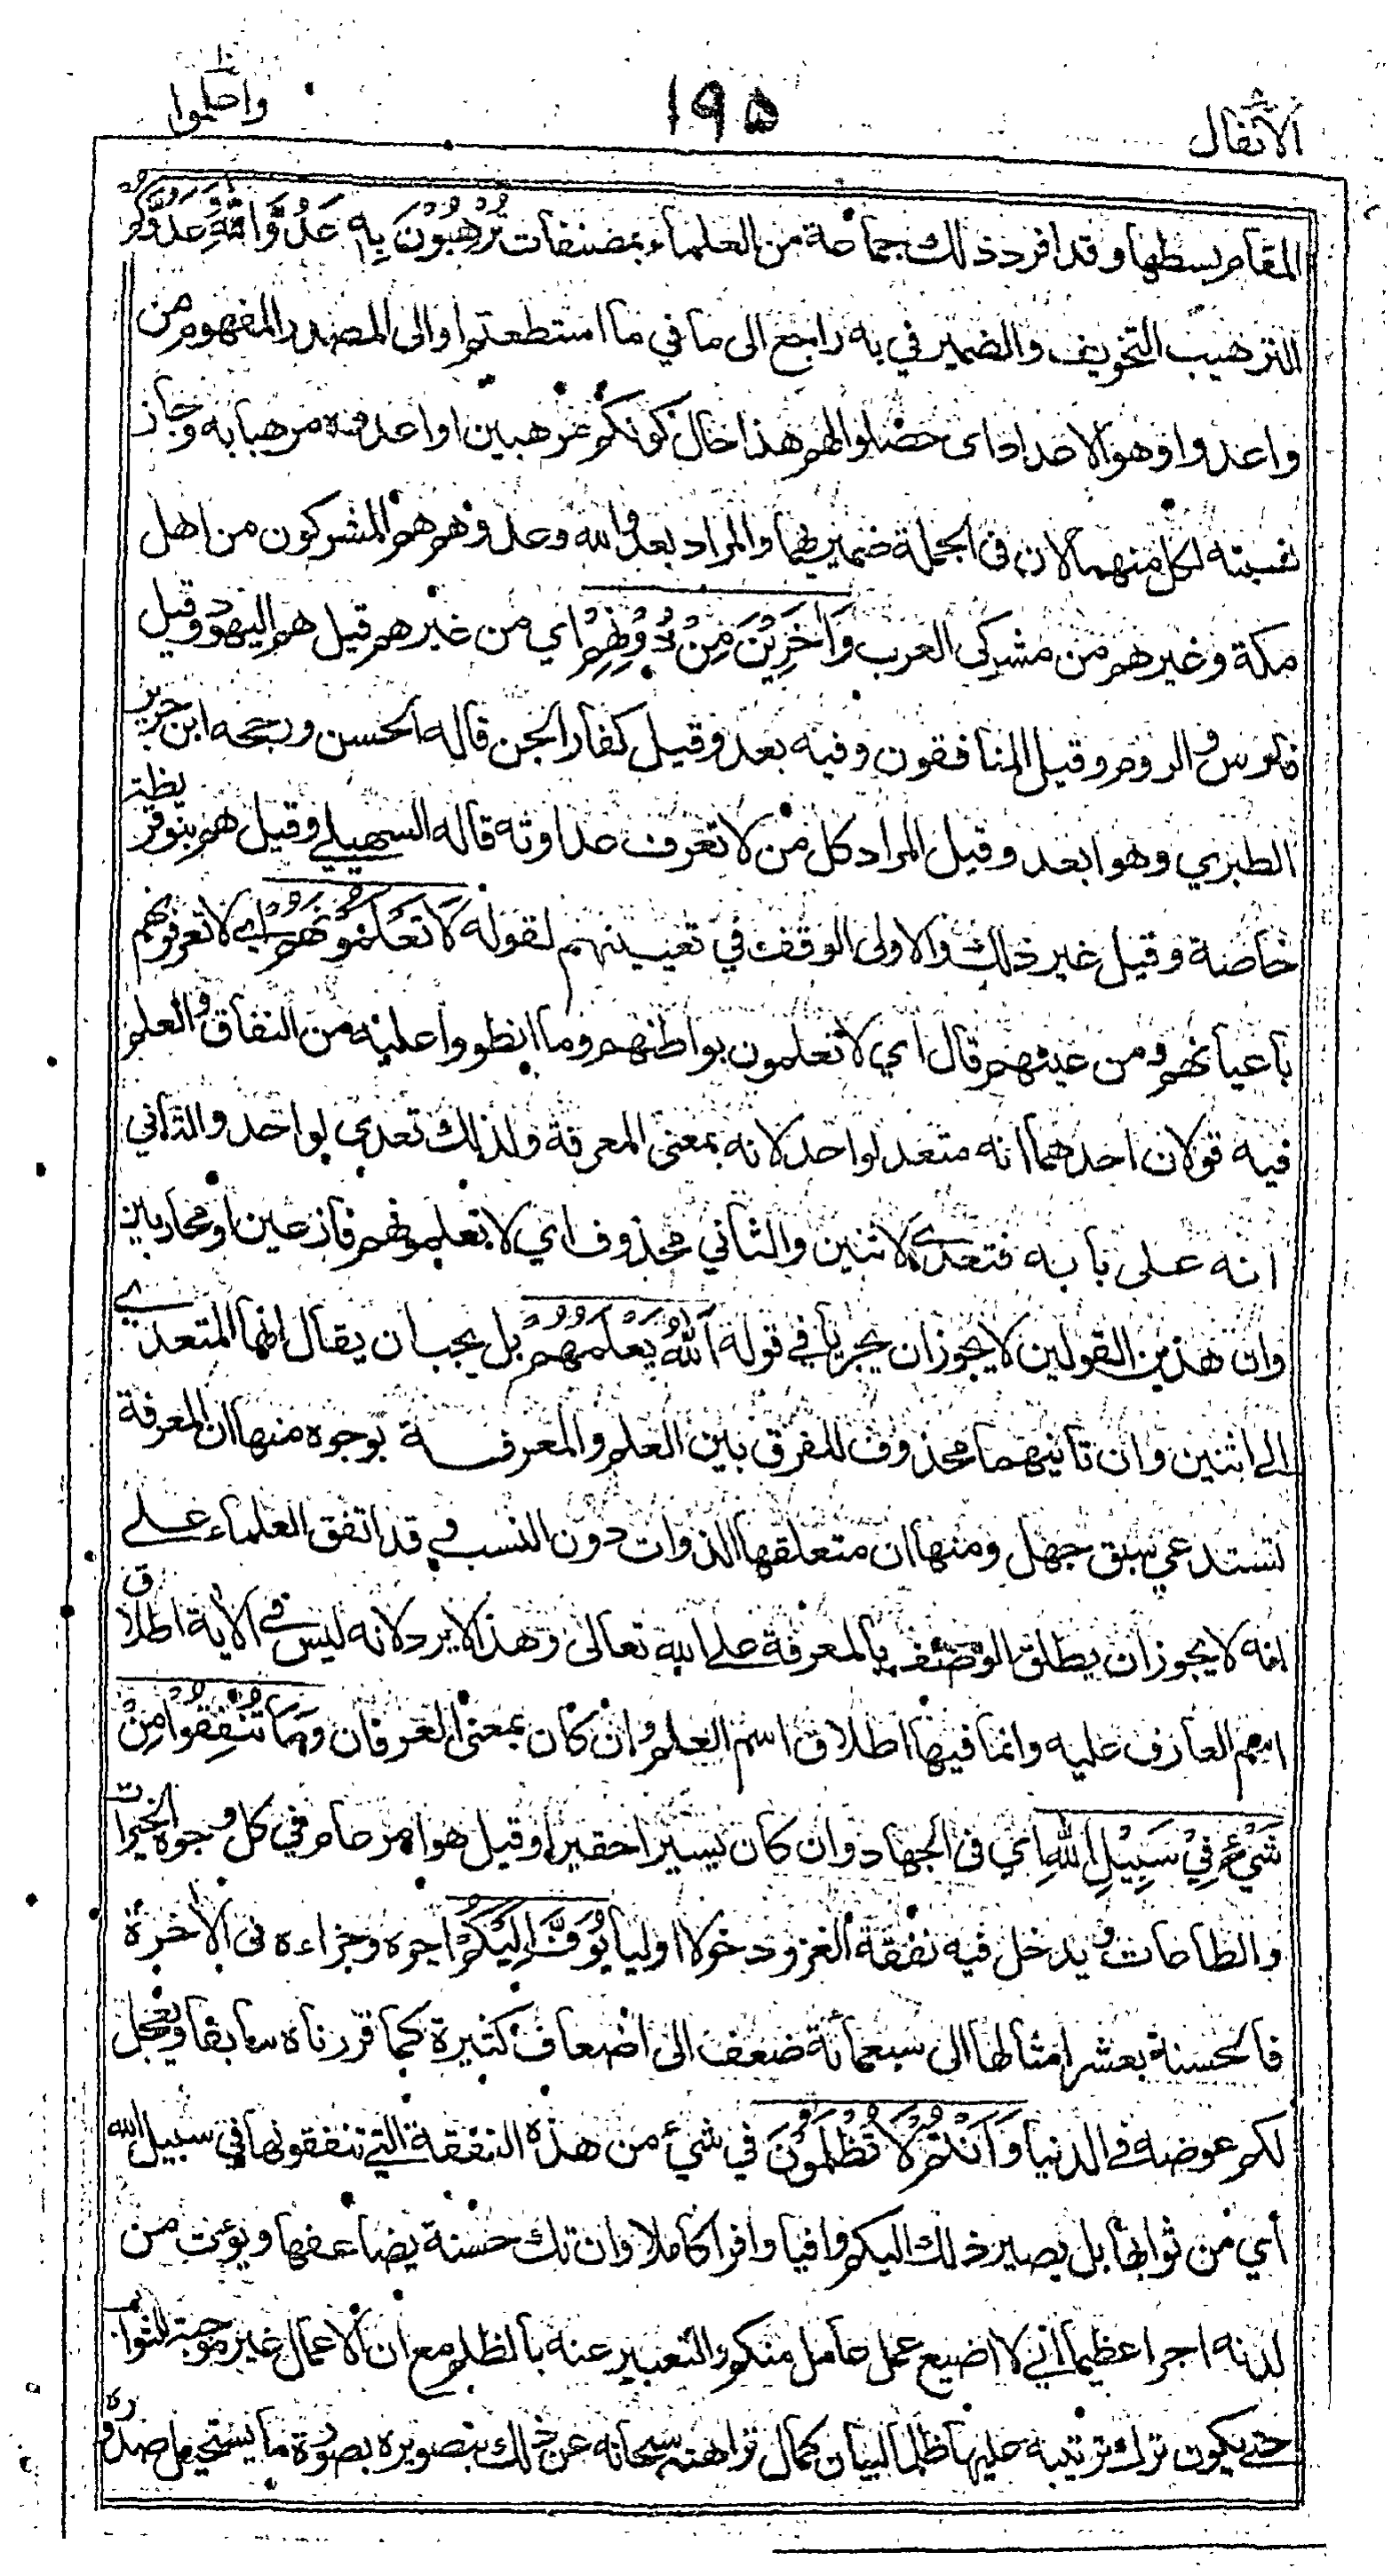 الأنفال
١٩٥
واعلموا
المقام بسطها وقد افرد ذلك جماعة من العلماء بمصنفات تُرْهِبُوْنَ بِهٖ عَدُوَّ اللّٰهِ وَعَدُوَّكُمْ
الترهيب التخويف والضمير في به راجع الى ما في ما استطعتم او الى المصدر المفهوم من
واعدوا وهو الاعداد اى حصلوا لهم هذا حال كونكم مرهبين او اعدوه مرهبا به وجاز
نسبته لكل منهما لان في الجملة ضميريهما والمراد بعدو الله وعدوهم هم المشركون من اهل
مكة وغيرهم من مشركى العرب وَاٰخَرِيْنَ مِنْ دُوْنِهِمْ اي من غيرهم قيل هم اليهود وقيل
فارس والروم وقيل المنافقون وفيه بعد وقيل كفار الجن قاله الحسن ورجحه ابن جرير
الطبري وهو ابعد وقيل المراد كل من لا تعرف عداوته قاله السهيلے وقيل هم بنو قريظة
خاصة وقيل غير ذلك والاولى الوقف في تعيينهم لقوله لَا تَعْلَمُوْنَهُمْ اے لا تعرفونهم
باعيانهم ومن عينهم قال اي لا تعلمون بواطنهم وما انطووا عليه من النفاق والعلم
فيه قولان احدهما انه متعد لواحد لانه بمعنى المعرفة ولذلك تعدى لواحد والثاني
انه على بابه فتعدے لاثنين والثاني محذوف اي لا تعلمونهم فازعين او محاربين
وان هذين القولين لا يجوز ان يجريا في قوله اَللّٰهُ يَعْلَمُهُمْ بل يجب ان يقال انها المتعدية
الے اثنين وان ثانيهما محذوف للفرق بين العلم والمعرفة بوجوه منها ان المعرفة
تستدعي سبق جهل ومنها ان متعلقها الذوات دون النسب وقد اتفق العلماء علے
انه لا يجوز ان يطلق الوصف بالمعرفة علے الله تعالى وهذا لا يرد لانه ليس في الاية اطلاق
اسم العارف عليه وانما فيها اطلاق اسم العلم وان كان بمعنى العرفان وَمَا تُنْفِقُوْا مِنْ
شَيْءٍ فِيْ سَبِيْلِ اللّٰهِ اي في الجهاد وان كان يسيرا حقيرا وقيل هو امر عام في كل وجوه الخيرات
والطاعات ويدخل فيه نفقة الغزو دخولا اوليا يُوَفَّ اِلَيْكُمْ اجره وجزاءه في الاخرة
فالحسنة بعشر امثالها الى سبعمائة ضعف الى اضعاف كثيرة كما قررناه سابقا ويعجل
لكم عوضه في الدنيا وَاَنْتُمْ لَا تُظْلَمُوْنَ في شيء من هذه النفقة التي تنفقونها في سبيل الله
أي من ثوابها بل يصير ذلك اليكم وافيا وافرا كاملا وان تك حسنة يضاعفها ويؤت من
لدنه اجرا عظيما اني لا اضيع عمل عامل منكم والتعبير عنه بالظلم مع ان الاعمال غير موجبة للثواب
حتے يكون ترك ترتيبه عليها ظلما لبيان كمال نزاهته سبحانه عن ذلك بتصويره بصورة ما يستحيل صدوره